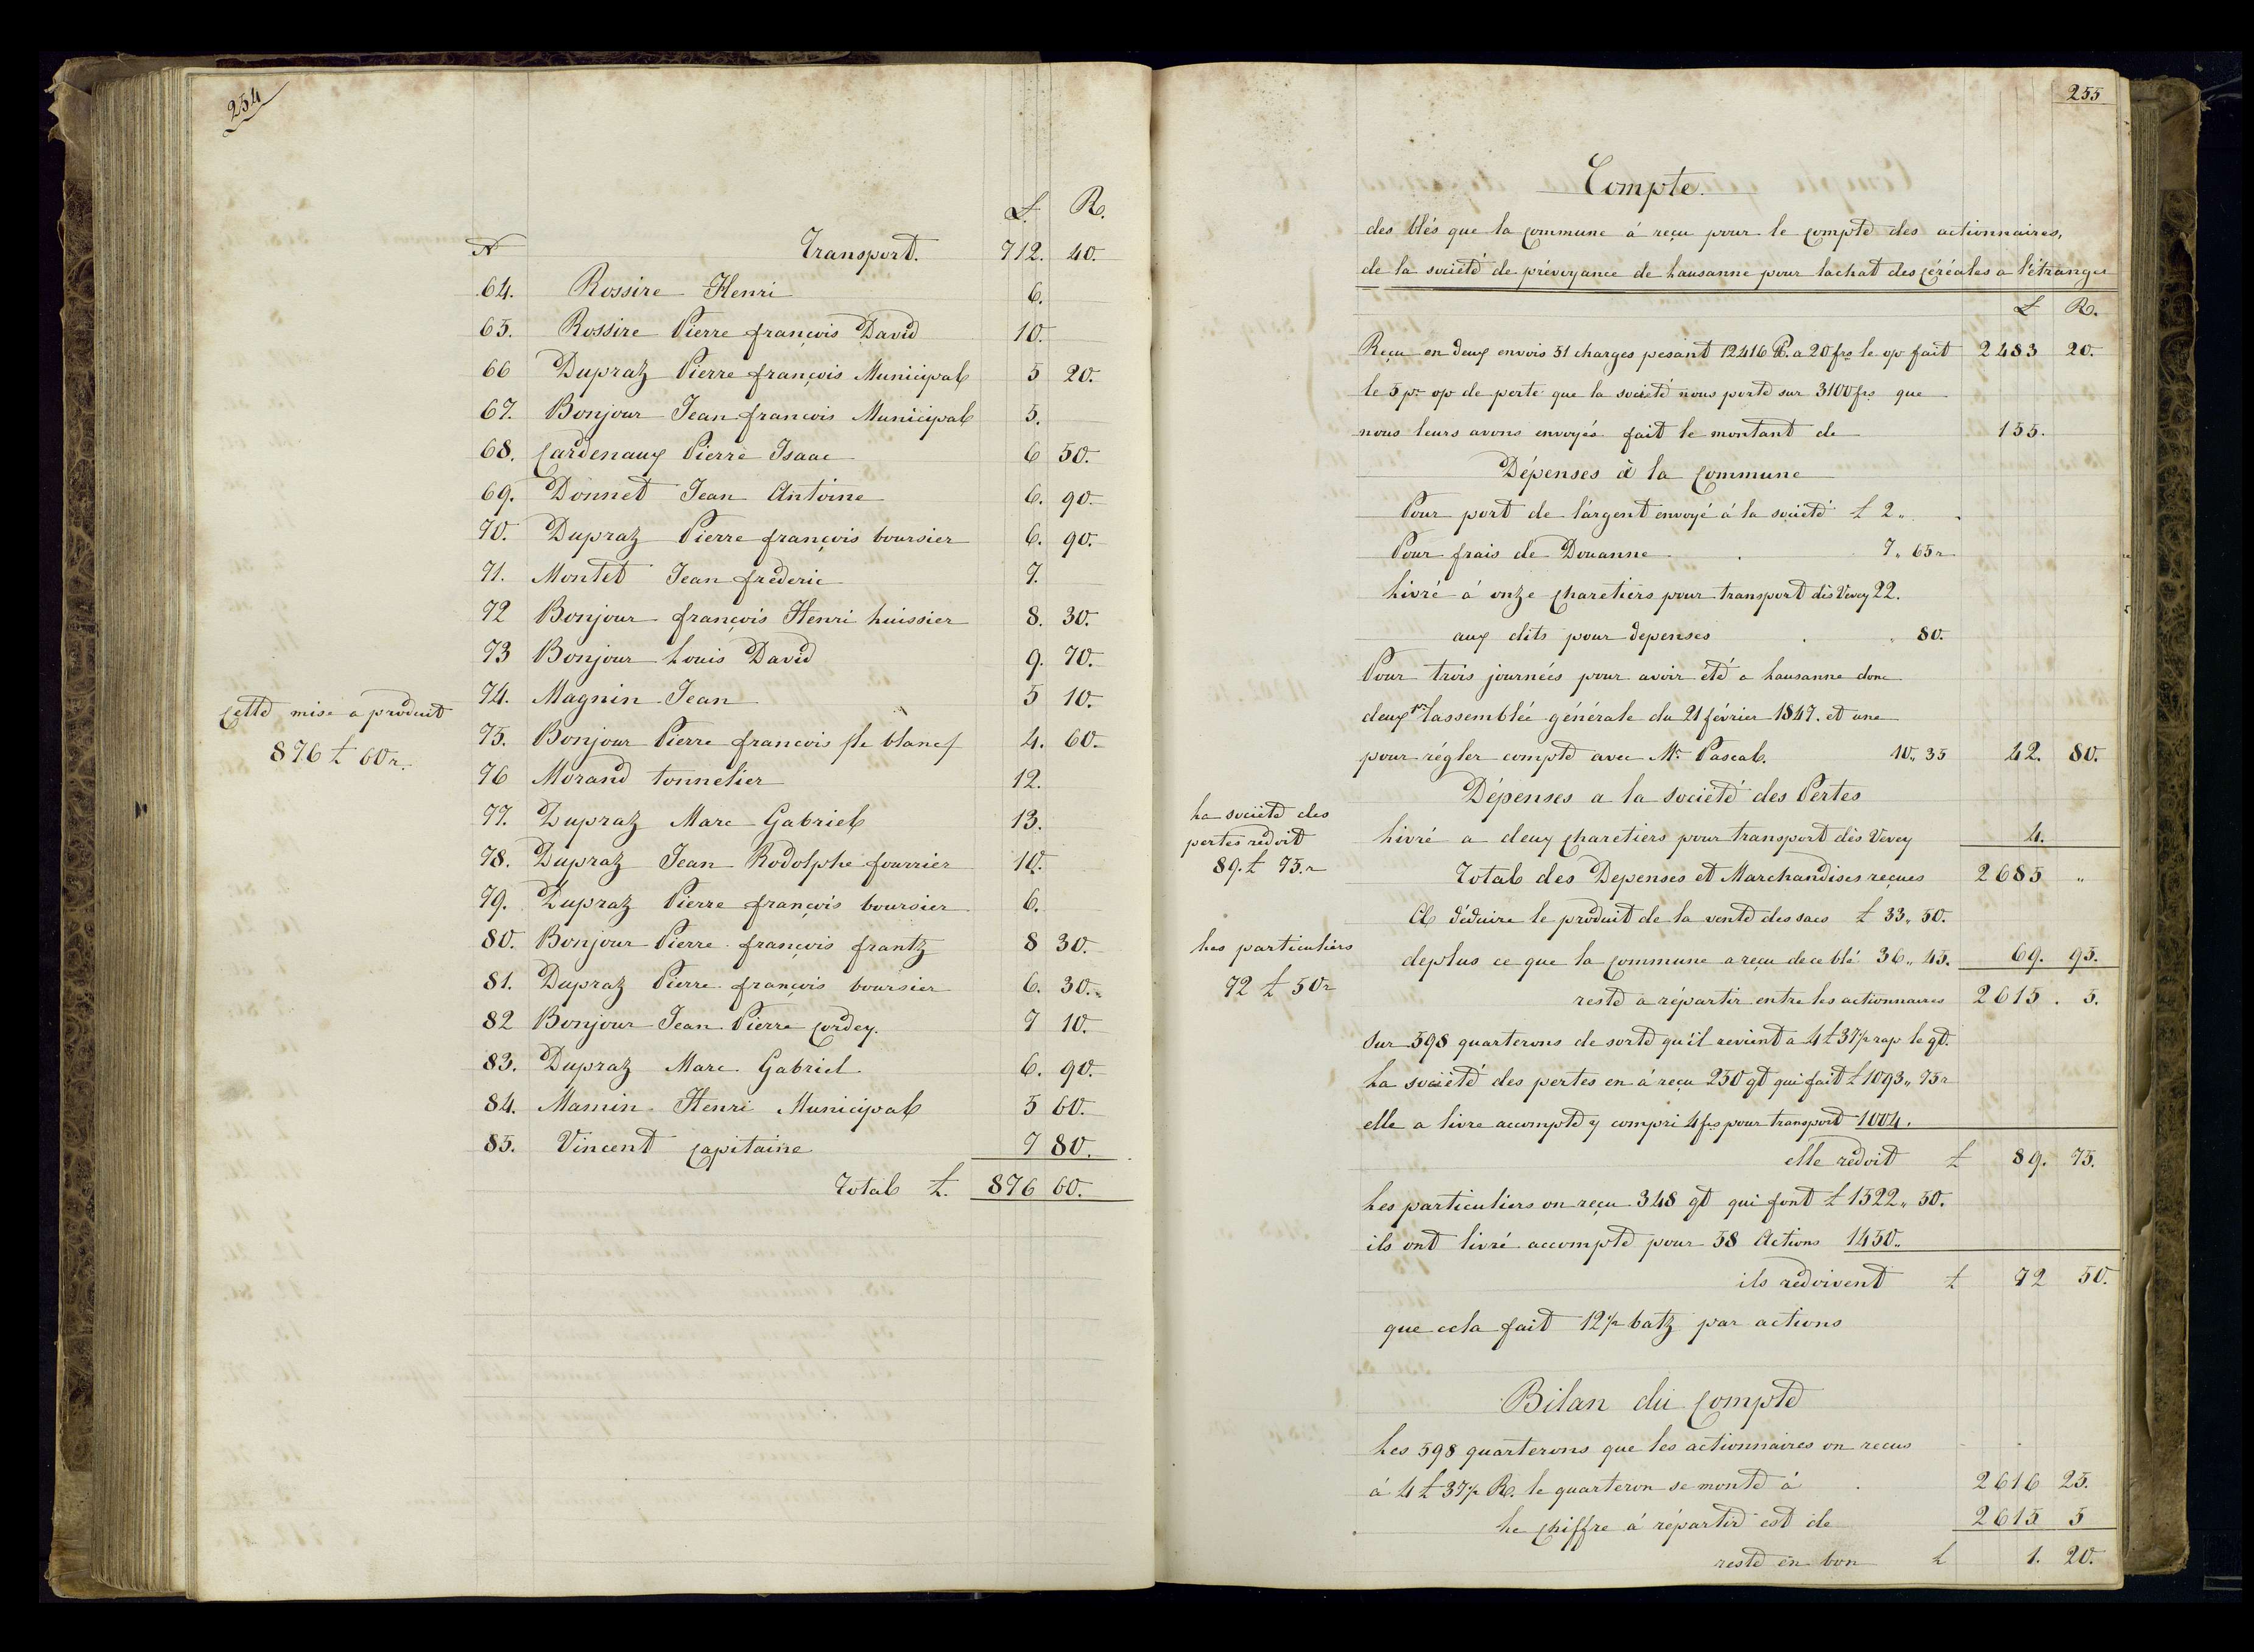 254
£. R.
N Transport. 712. 40.
64. Rossire Henri 6.
65. Rossire Pierre françois David 10.
66 Dupraz Pierre françois Municipal 5 20.
67. Bonjour Jean francois Municipal 5.
68. Cardenaux Pierre Isaac 6 50.
69. Donnet Jean Antoine 6. 90.
70. Dupraz Pierre françois boursier 6. 90.
71. Montet Jean fréderic 7.
72 Bonjour françois Henri huissier 8. 30.
73 Bonjour Louis David 9. 70.
74. Magnin Jean 5 10.
Cette mise a produit
876 £ 60 r.
75. Bonjour Pierre francois /le blanc/ 4. 60.
76 Morand tonnelier 12.
77. Dupraz Marc Gabriel 13.
78. Dupraz Jean Rodolphe fourrier 10.
79. Dupraz Pierre françois boursier 6.
80. Bonjour Pierre françois frantz 8 30.
81. Dupraz Pierre françois boursier 6. 30.
82 Bonjour Jean Pierre Cordey. 7 10.
83. Dupraz Marc Gabriel 6. 90.
84. Mamin Henri Municipal 5 60.
85. Vincent Capitaine 7 80.
Total £. 876 60.
255
Compte.
des blés que la Commune á reçu pour le Compte des actionnaires,
de la société de prévoyance de Lausanne pour lachat des Céréales a l'étranger
£ R.
Reçu en deux envois 51 charges pesant 12416 ℔. a 20 frs le op fait 2483 20.
le 5 pr op de perte que la société nous porte sur 3100 frs que
nous leurs avons envoyés fait le montant de 155.
Dépenses à la Commune
Pour port de l'argent envoyé á la société £ 2 „
Pour frais de Douanne 7 „ 65 r
Livré á onze Charetiers pour transport dès Vevey 22.
aux dits pour depenses . 80.
Pour trois journées pour avoir été a Lausanne donc
deux pr lassemblée générale du 21 février 1847. et une
pour régler compte avec Mr Pascal. 10 „ 35 42. 80.
Dépenses a la Société des Pertes
Livré a deux Charetiers pour transport dès Vevey 4.
La société des
pertes redoit
89. £ 75. r
Total des Depenses et Marchandises reçues 2685 „
A déduire le produit de la vente des sacs £ 33 „ 50.
deplus ce que la Commune a reçu de ce blé 36 „ 45. 69. 95.
Les particuliers
72 £ 50 r
reste a répartir entre les actionnaires 2615 . 5.
Sur 598 quarterons de sorte qu'il revient a 4 £ 37 ½ rap le qt.
La société des pertes en á reçu 250 qt qui fait £ 1093 „ 75 r
elle a livre accompte y compri 4 frs pour transport 1004.
elle redoit £ 89. 75.
Les particuliers on reçu 348 qt qui font £ 1522 „ 50.
ils ont livré accompte pour 58 Actions 1450 „
ils redoivent £ 72 50.
que cela fait 12 ½ batz par actions
Bilan du Compte
Les 598 quarterons que les actionnaires on recus
á 4 £ 37 ½ R. le quarteron se monte á 2616 25.
Le Chiffre á répartir est de 2615 5
reste en bon £ 1. 20.